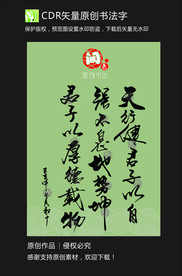 CDR矢量原创书法字
保护版权，预览图设置水印防盗，下载后矢量无水印
天行健君子以自
强不息地势坤
君子以厚德载物
原创作品｜侵权必究
感谢支持原创素材，欢迎下载！